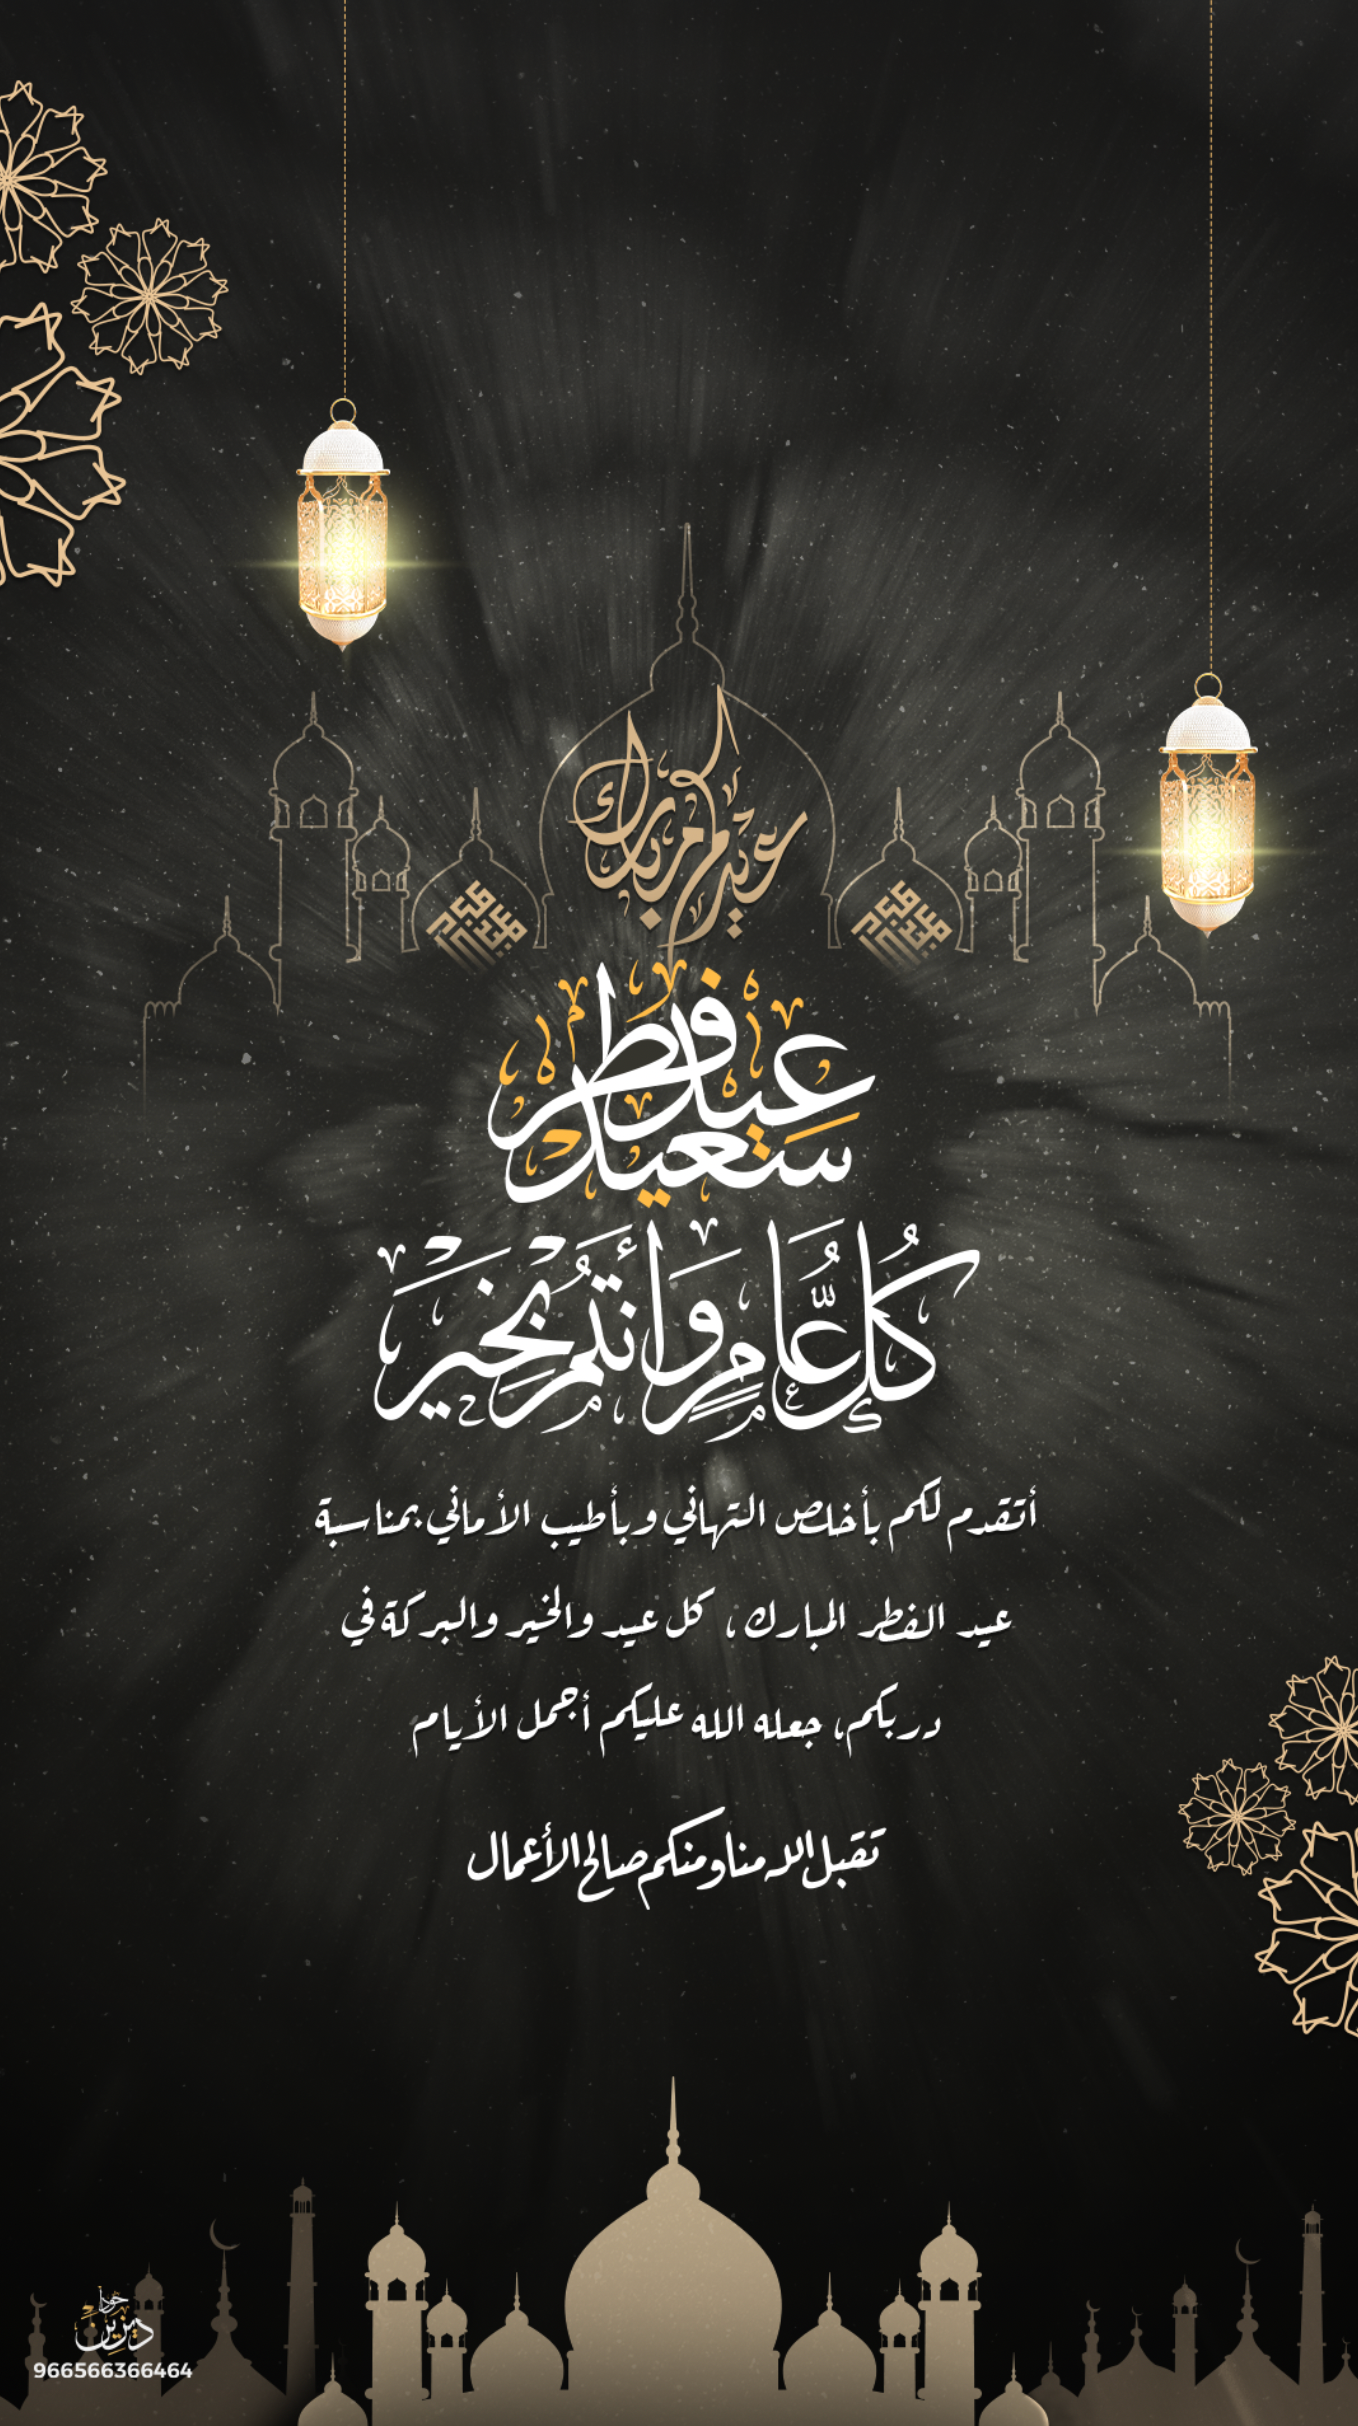 عيدكم مبارك
عيد فطر
سعيد
كُل عَامٍ وَأنتُم بِخَيْر
أتقدم لكم بأخلص التهاني وبأطيب الأماني بمناسبة
عيد الفطر المبارك، كل عيد والخير والبركة في
دربكم، جعله الله عليكم أجمل الأيام
تقبل الله منا ومنكم صالح الأعمال
ديزين
966566366464